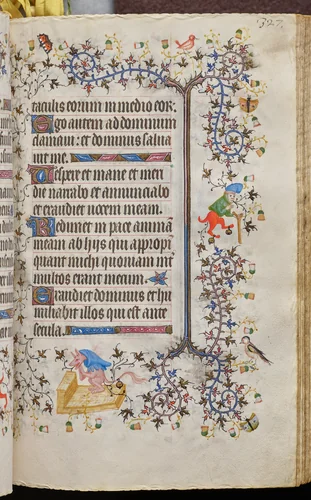 327
taculis eorum in medio eor:
Ego autem ad dominum
clamaui: et dominus salua
uit me.
Vespere et mane et meri
die narrabo et annunciabo
et exaudiet uocem meam.
Redimet in pace animā
meam ab hys qui appropi
quant michi quoniam int
multos erant mecum.
Exaudiet dominus et hu
miliabit illos qui est ante
secula.